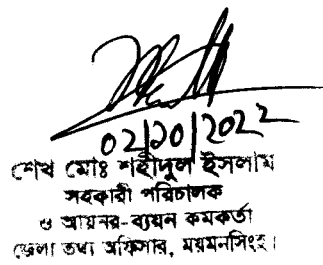 02/10/2022
শেখ মোঃ শহীদুল ইসলাম
সহকারী পরিচালক
ও আয়নর-ব্যয়ন কমকর্তা
জেলা তথ্য অফিসার, ময়মনসিংহ।